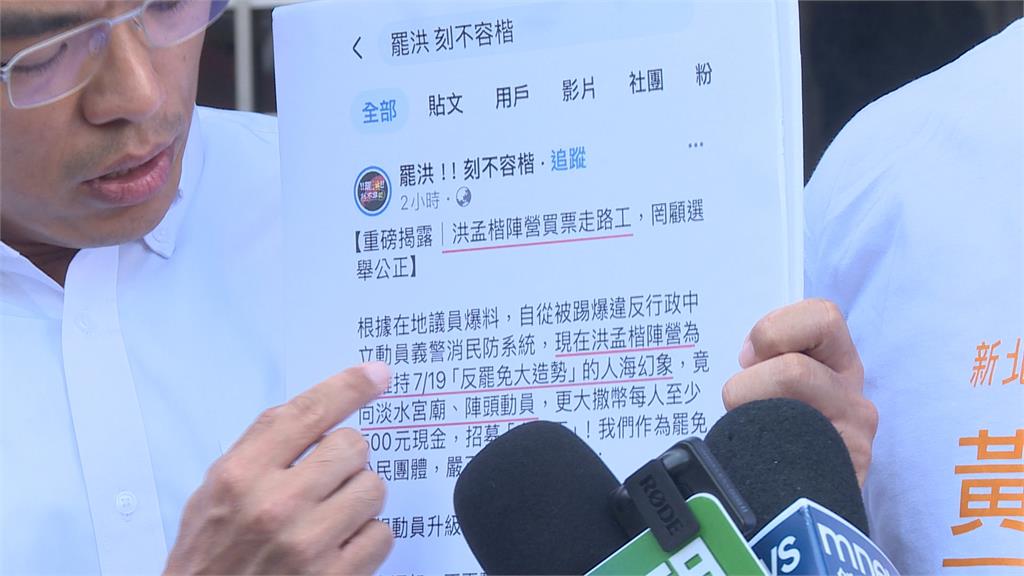 罷洪 刻不容楷
全部 貼文 用戶 影片 社團 粉
罷洪 !! 刻不容楷 · 追蹤
2小時 ·
【重磅揭露｜洪孟楷陣營買票走路工，罔顧選
舉公正】
根據在地議員爆料，自從被踢爆違反行政中
立動員義警消民防系統，現在洪孟楷陣營為
維持7/19「反罷免大造勢」的人海幻象，竟
向淡水宮廟、陣頭動員，更大撒幣每人至少
500元現金，招募「 」！我們作為罷免
公民團體，嚴
動員升級
RØDE
mne
新北
黃